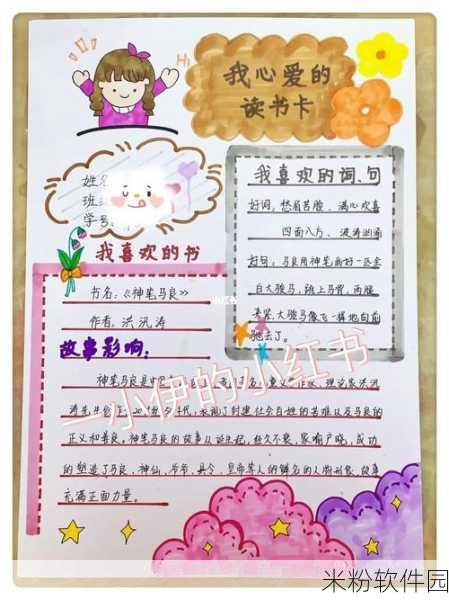 Hi
我心爱的
读书卡
姓名
班级
学号
我喜欢的词、句
好词：愁眉苦脸、满心欢喜
四面八方、波涛汹涌
好句：马良用神笔画好一匹金
白大骏马，跳上马背，两腿
夹紧，大骏马像飞一样地向前
驰去了。
我喜欢的书
小红书
书名：《神笔马良》
作者：洪汛涛
故事影响：
一小伊的小红书
神笔马良是中国
理论家洪汛
涛先生创
年代，表现了封建社会百姓的苦难以及马良的
正义和善良。神笔马良的故事从诞生起，经久不衰，家喻户晓，成功
的塑造了马良，神仙，爷爷，县令，皇帝等人的鲜名的人物形象，故事
充满正面力量。
米粉软件园